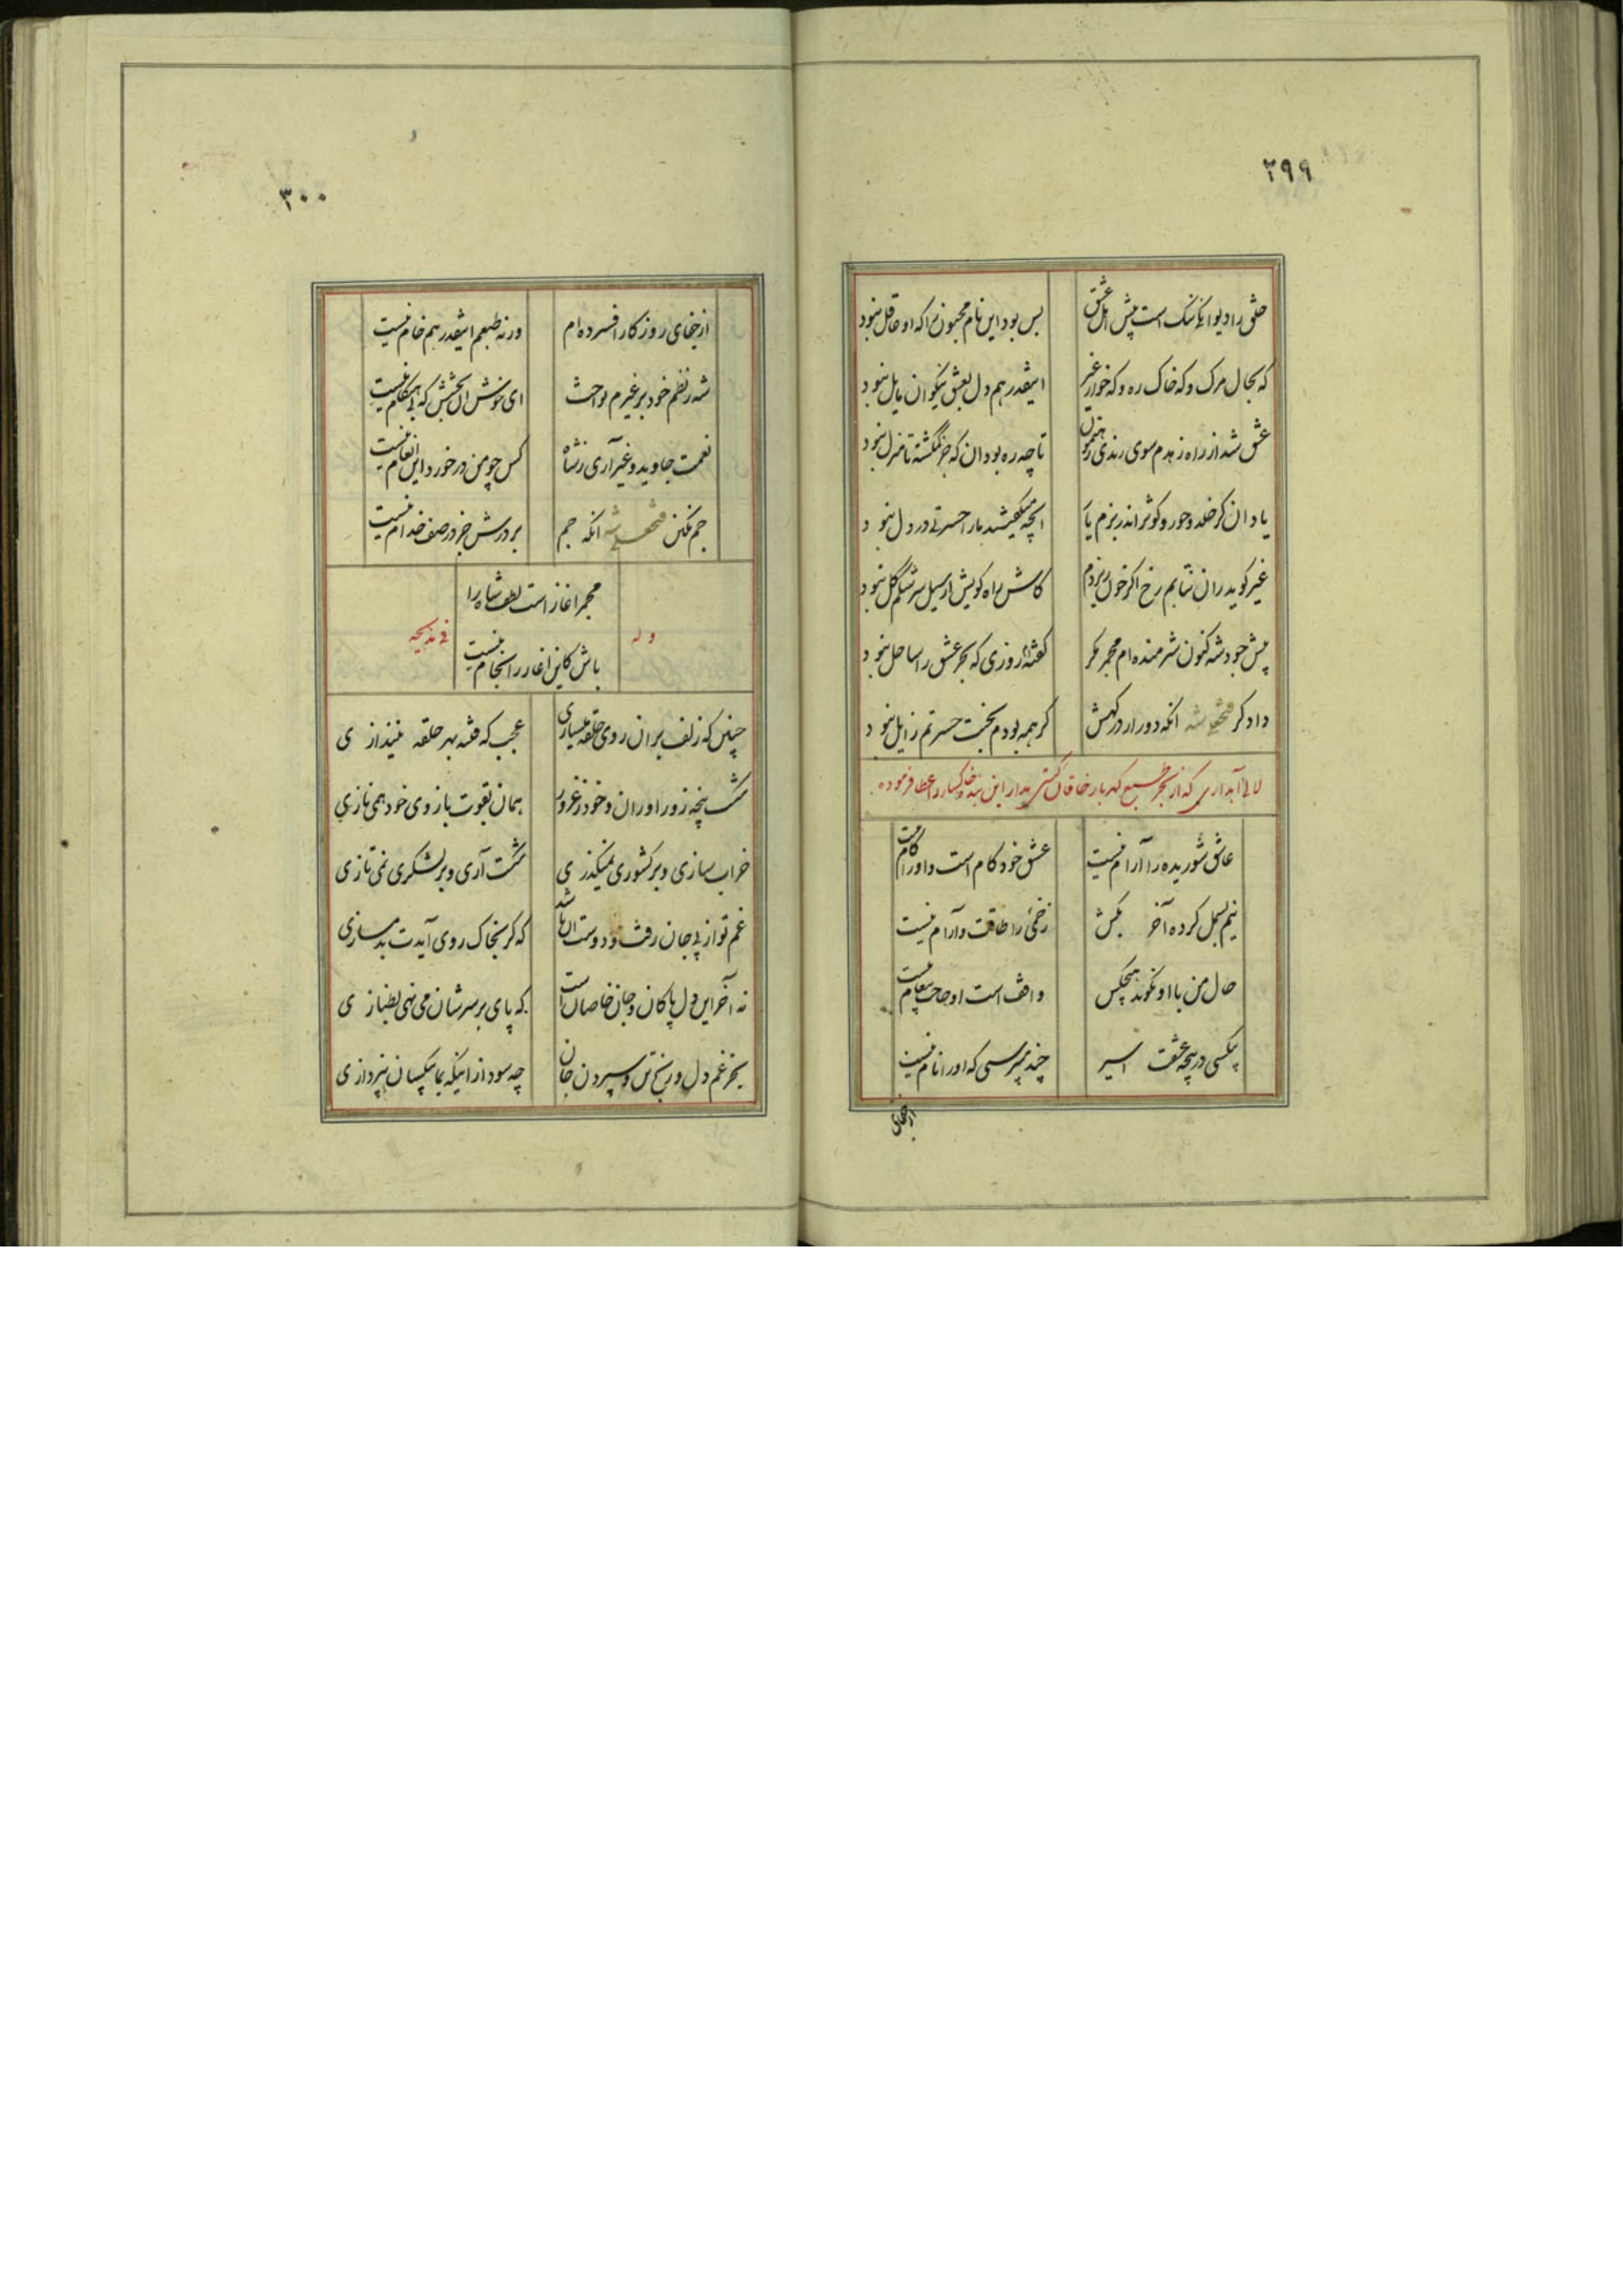 ۲۹۹
خلق را دیوانگی ننگ است پیش اهل عشق
بس بود این نام مجنون را که او عاقل نبود
که بحال مرک و که خاک ره و که خوار غیر
اینقدر هم دل بعشق نیکوان مایل نبود
عشق شد از راه زهدم سوی رندی رهنمون
تا چه ره بود آن که جز گمگشته تا منزل نبود
یاد آن کز خلد و حور و کوثر اندر بزم یار
آنچه میگفتند ما را حسرتی در دل نبود
غیر کوید ران نتابم رخ اگر خون ریزدم
کاش راه کویش از سیل سرشکم گل نبود
پیش جود شه کنون شرمنده ام مجمر مگر
گفته روزی که بحر عشق را ساحل نبود
دادگر فتحعلی شه آنکه دور از درگهش
گر همه بودم بجنت حسرتم زایل نبود
لالی آبداری که از بحر طبع گهربار خاقان گیتی مدار این بنده خاکسار را عطا فرموده
عاشق شوریده را آرام نیست
عشق خود کام است و او را کام نیست
نیم بسمل کرده آخر بکش
زخمی را طاقت و آرام نیست
حال من با او نگوید هیچکس
واقف است او حاجت پیغام نیست
بیکسی در پنجه عشقت اسیر
چند پرسی که او را نام نیست
از جفای
۳۰۰
از جفای روزگار افسرده ام
ورنه طبعم اینقدر هم خام نیست
شه ز نظم خود بر غیرم نواخت
ای خوش آن بخشش که بی هنگام نیست
نعمت جاوید و غیر آری ز شاه
کس چو من در خورد این انعام نیست
جم نگین فتحعلی شه آنکه جم
بر درش جز در صف خدام نیست
مجمر آغاز است لطف شاه را
باش کاین آغاز را انجام نیست
وله
فی مدیحه
چنین که زلف بر آن روی حلقه میسازی
عجب که فتنه بهر حلقه نیندازی
شکست پنجه زورآوران و خود ز غرور
همان بقوت بازوی خود همی نازی
خراب سازی و بر کشوری نمیگذری
شکست آری و بر لشکری نمی تازی
غم تو از پی جان رفت و دوست آن باشد
که گر بخاک روی آیدت بدمسازی
نه آخر این دل پاکان و جان خاصان است
که پای بر سرشان می نهی بطنازی
بجز غم دل و رنج تن و سپردن جان
چه سود از اینکه بما بیکسان نپردازی